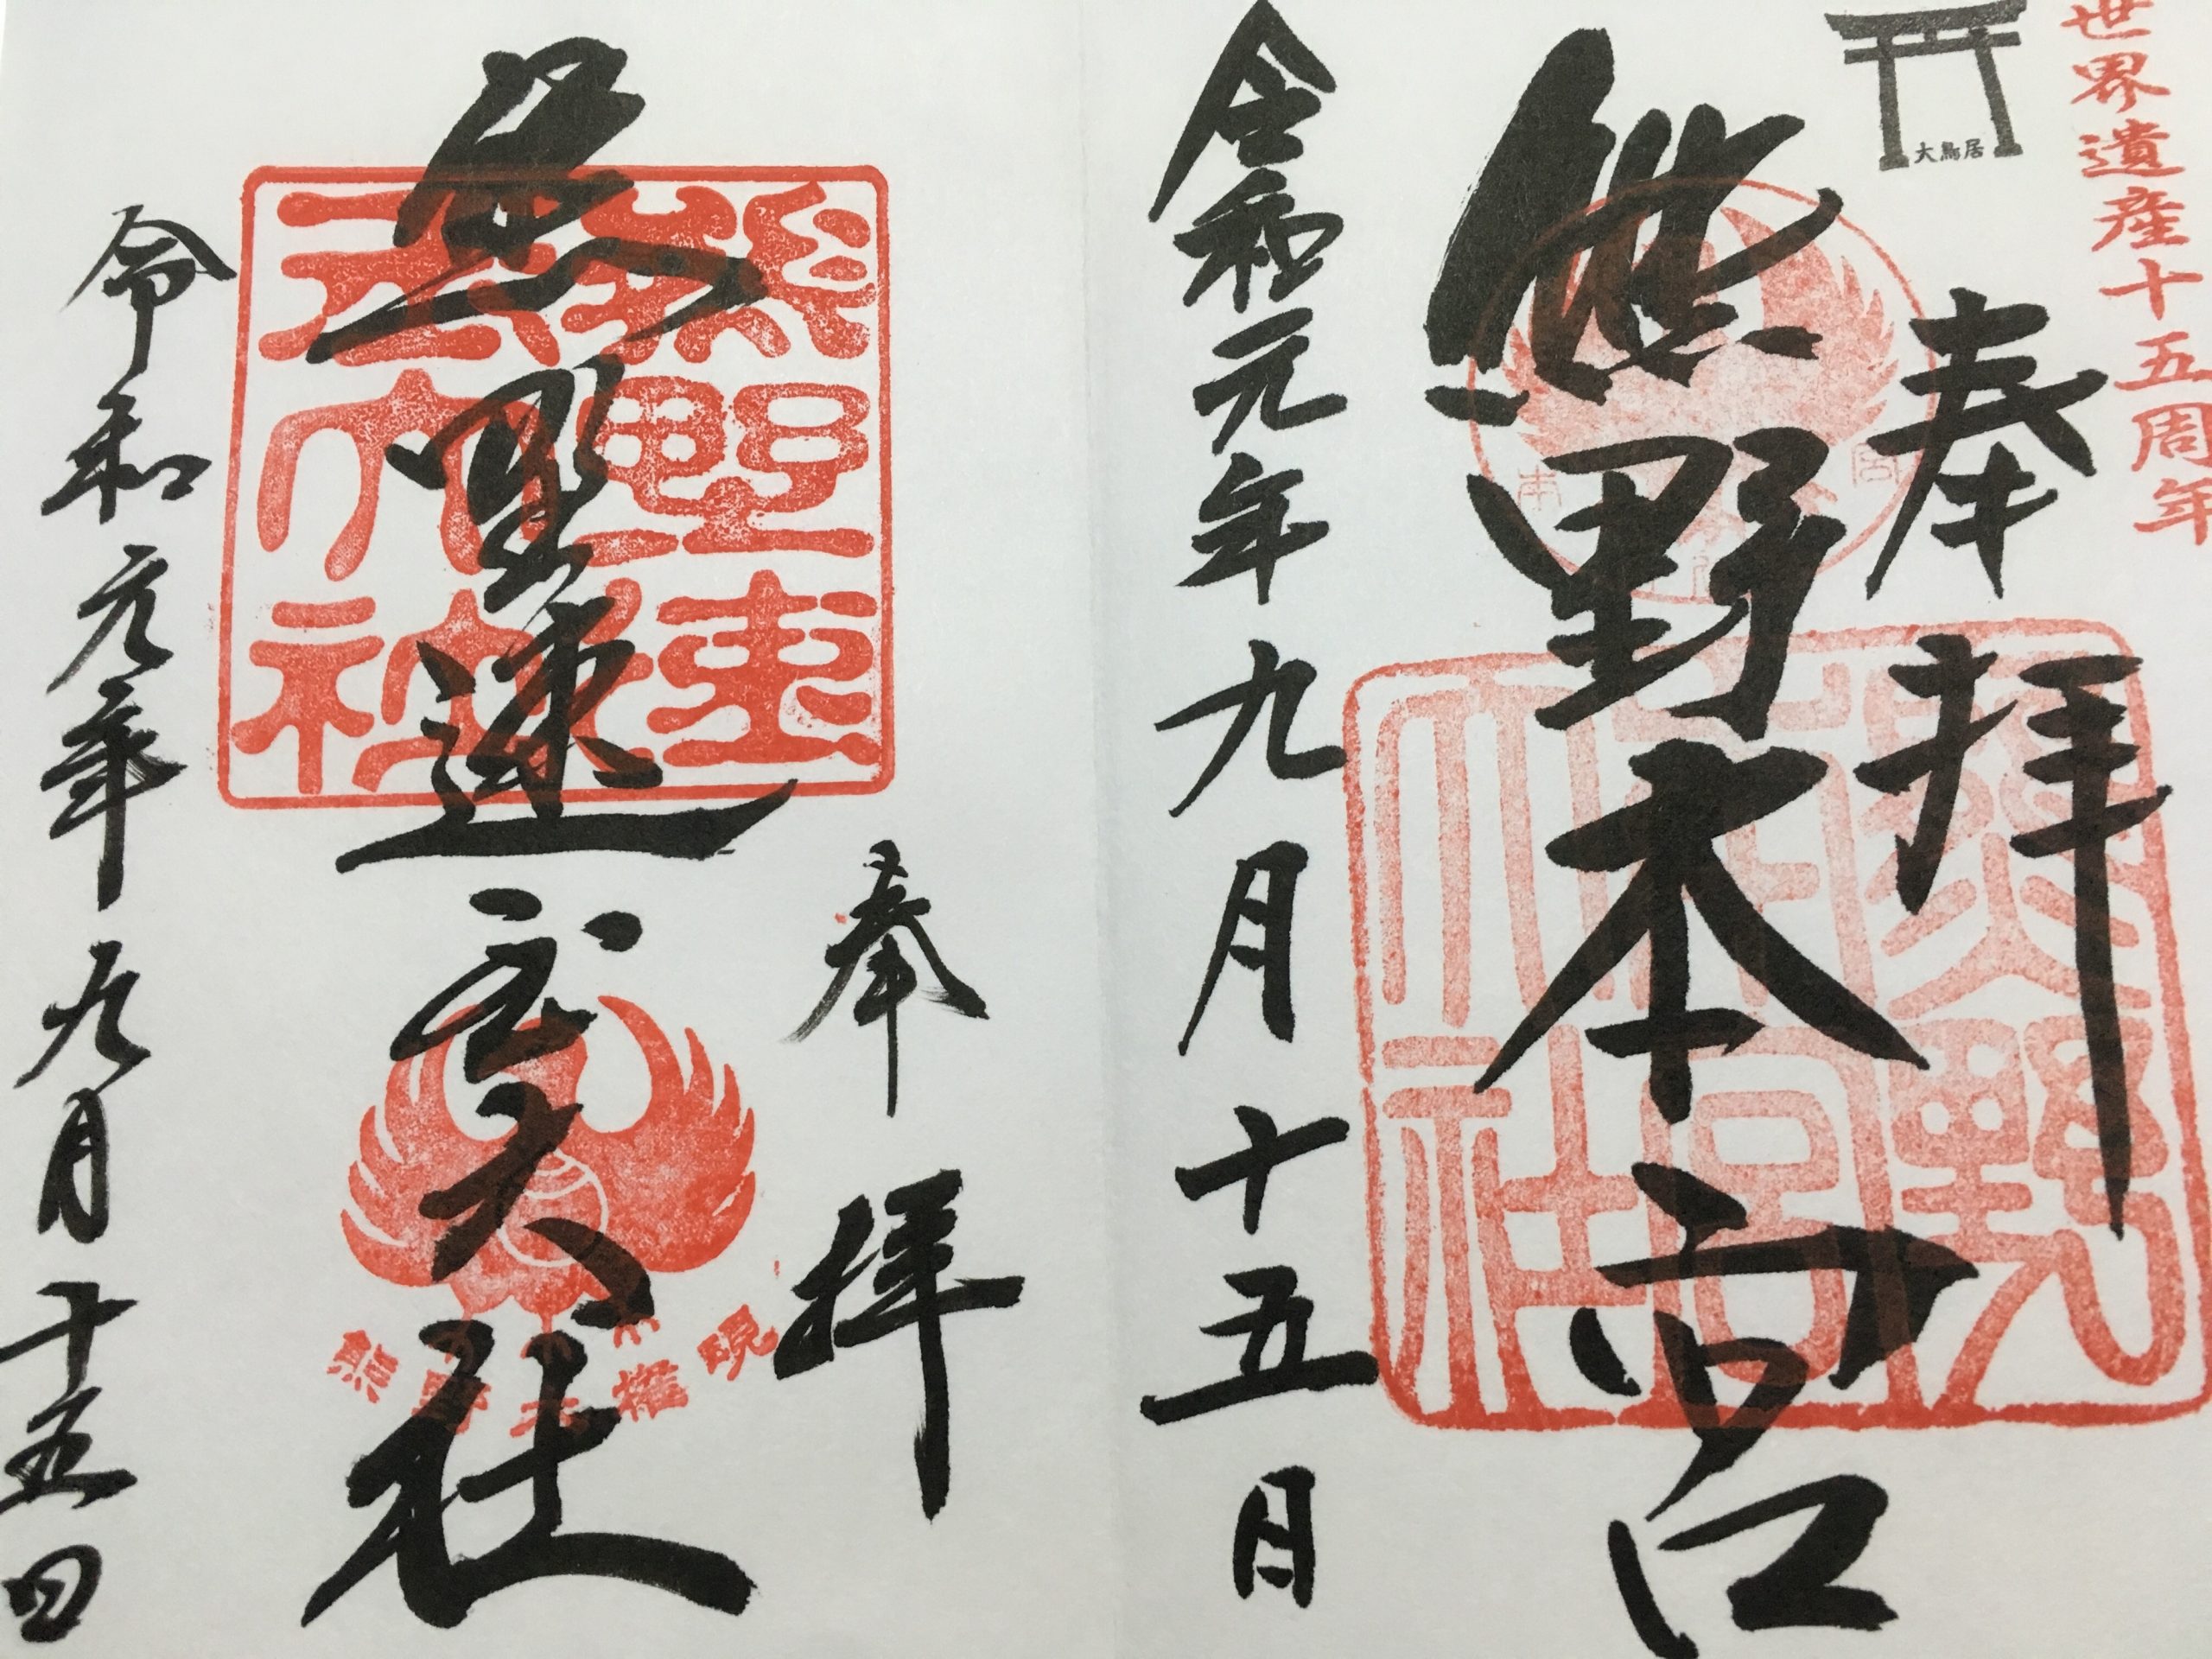 世界遺産十五周年
大鳥居
奉拝
熊野本宮
熊野
本宮
大社
令和元年九月十五日
奉拝
熊野速玉大社
熊野速
玉大神
熊野大権現
令和元年九月十五日